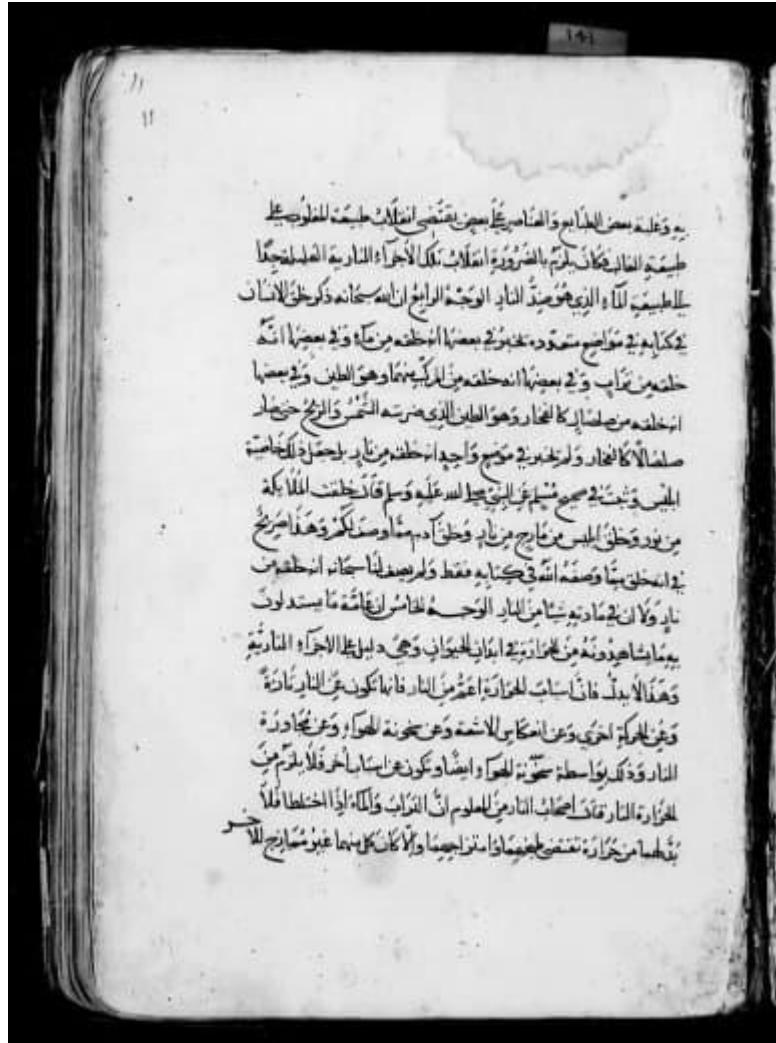 ١٤١
١١
١١
به وغلبة بعض الطبايع والعناصر على بعض يقتضى انقلاب طبيعة المغلوب على
طبيعة الغالب فكان يلزم بالضرورة انقلاب تلك الأجزاء النارية القليلة جدا
الى طبيعة الماء الذي هو ضد النار الوجه الرابع ان الله سبحانه ذكر خلق الانسان
في كتابه في مواضع متعدده يخبر في بعضها انه خلقه من ماء وفي بعضها انه
خلقه من تراب وفي بعضها انه خلقه من المركب منهما وهو الطين وفي بعضها
انه خلقه من صلصال كالفخار وهو الطين الذي ضربته الشمس والريح حتى صار
صلصالا كالفخار ولم يخبر في موضع واحد انه خلقه من نار بل جعل ذلك خاصية
ابليس وثبت في صحيح مسلم عن النبي صلى الله عليه وسلم قال خلقت الملايكة
من نور وخلق ابليس من مارج من نار وخلق آدم مما وصف لكم وهذا صريح
في انه خلق مما وصفه الله في كتابه فقط ولم يصف لنا سبحانه انه خلقه من
نار ولا ان في مادته شيا من النار الوجه الخامس ان غاية ما يستدلون
به ما يشاهدونه من الحرارة في ابدان الحيوان وهي دليل على الاجزاء النارية
وهذا لا يدل فان اسباب الحرارة اعم من النار فانها تكون عن النار تارة
وعن الحركة اخرى وعن انعكاس الاشعة وعن سخونة الهواء وعن مجاورة
النار وذلك بواسطة سخونة الهواء ايضا وتكون عن اسباب أخر فلا يلزم من
الحرارة النار قال اصحاب النار من المعلوم ان التراب والماء اذا اختلطا فلا
بد لهما من حرارة تقتضى طبخهما وامتزاجهما والا كان كل منهما غير ممازج للآخر